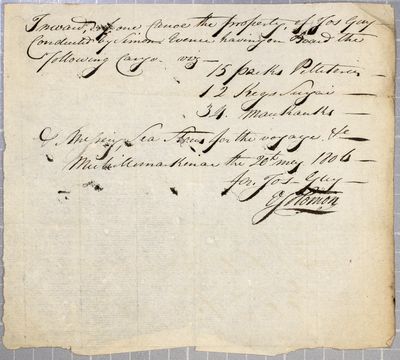 Inward, of one Canoe the property, of Jos Guy
Conducted by Simon having on Board the
following Cargo viz —
15 packs Pelleteries —
12 Kegs Sugar —
34. Mawkauks —
& Sea Stores for the voyage, &c
Michilimakinac the 20th may 1806 —
for Jos — Guy —
G Solomon